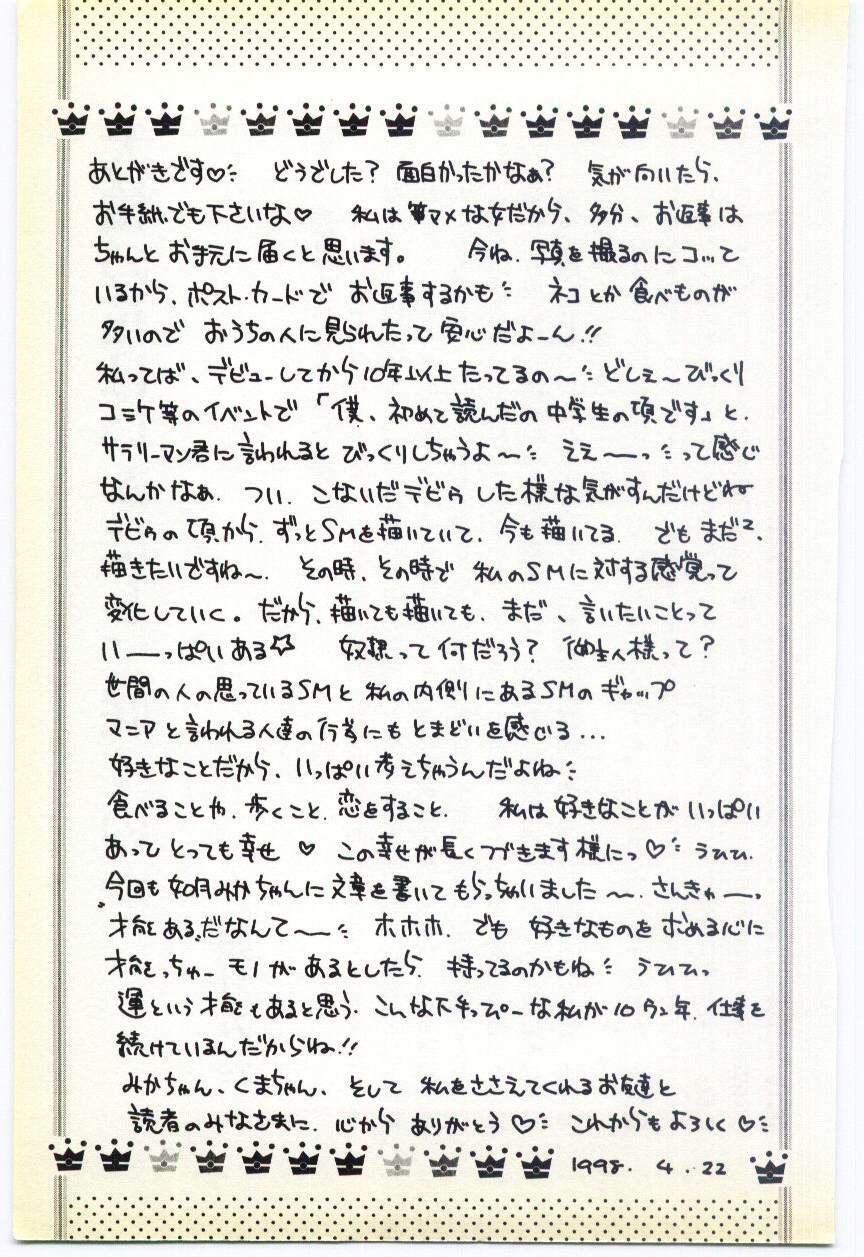 あとがきです♡ どうでした? 面白かったかなぁ? 気が向いたら、
お手紙でも下さいな♡ 私は筆マメな女だから、多分、お返事は
ちゃんとお手元に届くと思います。 今ね、写真を撮るのにコッて
いるから、ポスト・カードで お返事するかも ネコとか食べものが
多いので おうちの人に見られたって安心だよーん!!
私ってば、デビューしてから10年以上たってるの〜 どしぇ〜びっくり
コミケ等のイベントで「僕、初めて読んだの中学生の頃です」と、
サラリーマン君に言われると びっくりしちゃうよ〜 ええーーっって感じ
なんかなぁ、つい、こないだデビゥした様な気がすんだけどねー
デビゥの頃から、ずっとSMを描いていて、今も描いてる。でもまだ2、
描きたいですね〜、その時、その時で 私のSMに対する感覚って
変化していく。だから、描いても描いても、まだ、言いたいことって
いーーっぱいある☆ 奴隷って何だろう? 御主人様って?
世間の人の思っているSMと私の内側にあるSMのギャップ
マニアと言われる人達の行為にもとまどいを感じる...
好きなことだから、いっぱい考えちゃうんだよね
食べることや、歩くこと、恋をすること、 私は好きなことがいっぱい
あって とっても幸せ ♡ この幸せが長くつづきます様にっ♡ うひひ、
今回も如月みかちゃんに文章を書いてもらっちゃいました〜、さんきゅーっ
"才能ある"だなんて〜 ホホホ、でも 好きなものを求める心に
才能っちゃーモノがあるとしたら、持ってるのかもね うひひっ
運という才能もあると思う、こんな下手っぴーな私が10ウン年、仕事を
続けているんだからね!!
みかちゃん、くまちゃん、そして 私をささえてくれるお友達と
読者のみなさまに、心から ありがとう♡ これからもよろしく♡
1998. 4. 22